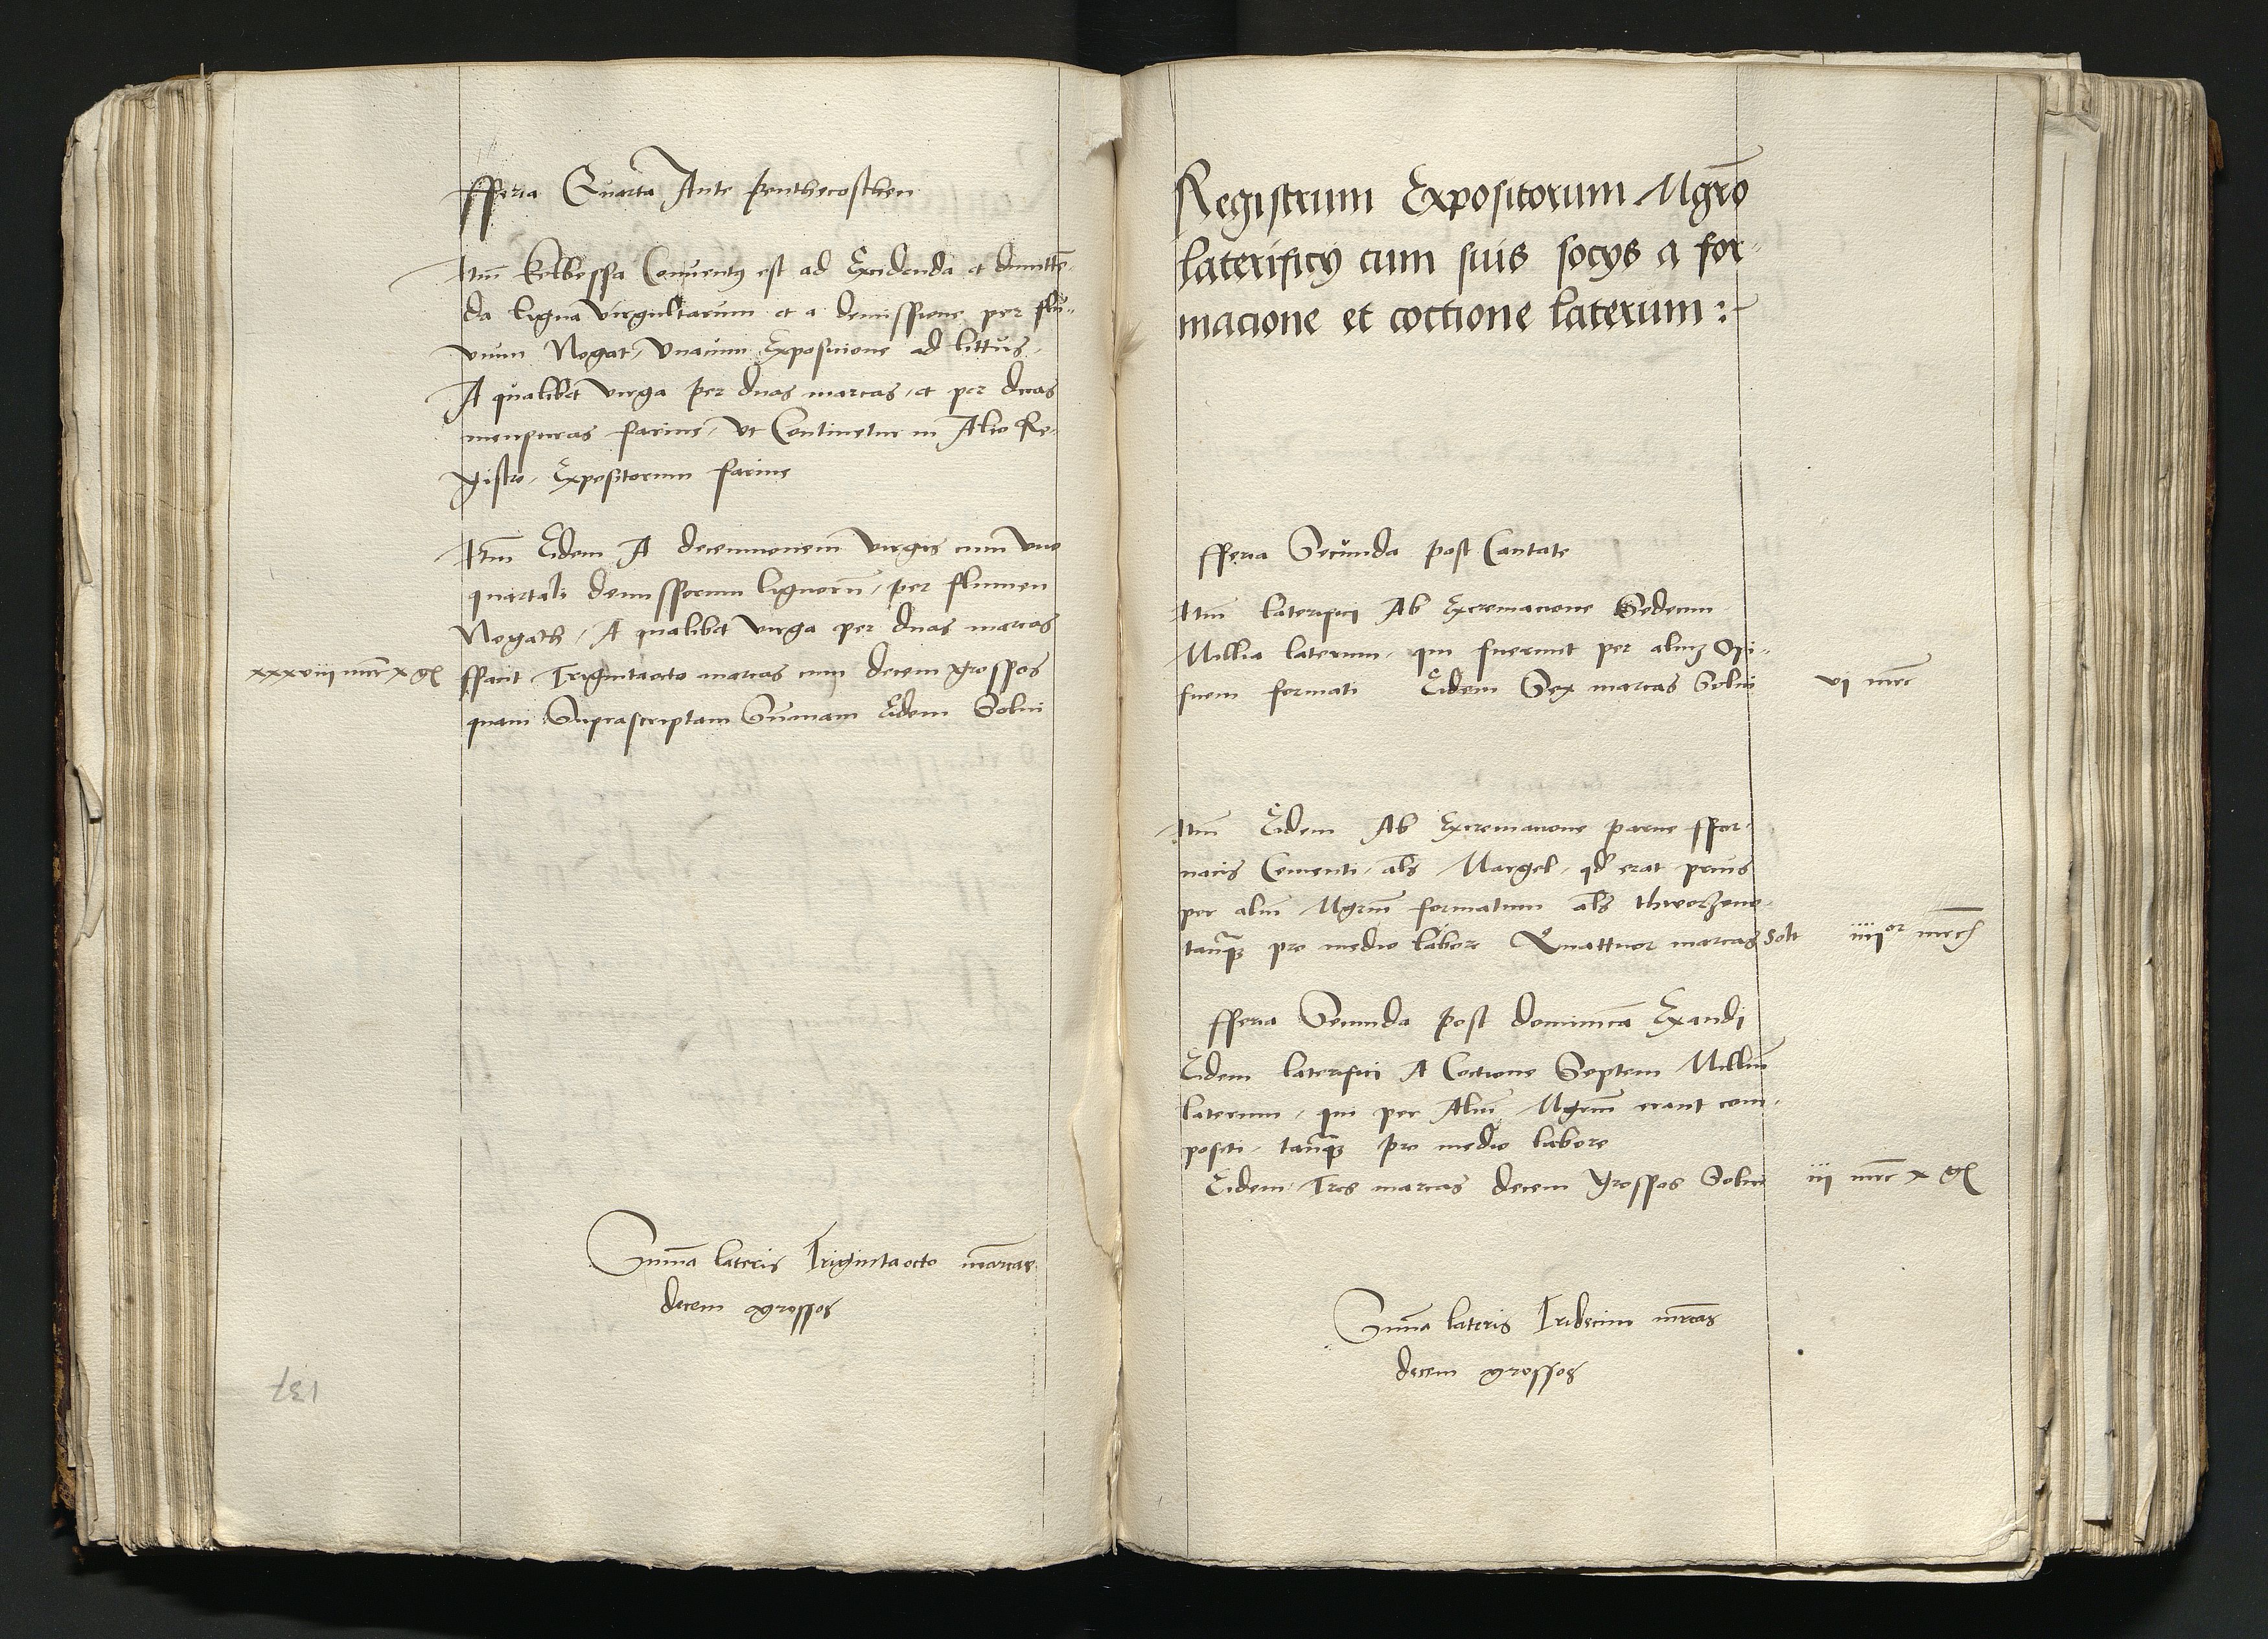 Fferia Quarta Ante Penthecosthen
Itm̄ kolbessa Conuentꝫ est ad Excidenda et dimitte͞n-
da ligna virgultarum et a demissione per flu-
uium Nogat / Vnacum Exposicione ad littus,
A qualibet virga per duas marcas, et per duas
mensuras farine, vt Continetur in Alio Re-
gistro, Expositorum farine
Itm̄ Eidem A decemnouem virgis cum vno
quartali demissorum lignorū, per flumen
Nogath, A qualibet virga per duas marcas
xxxviii mrc x gͬ ffacit Trigintaocto marcas cum decem grossos
quam Suprascriptam Summam Eidem Solui
Summa lateris Trigintaocto marcas
decem grossos
137
Registrum Expositorum Mgr̄o
laterificij cum suis socijs a for-
macione et coctione laterum :-
Fferia Secunda post Cantate
Itm̄ laterifici Ab Excremacione Sedecim
Millia laterum, qui fuerunt per aliuꝫ Opi-
ficem formati Eidem Sex marcas Solui vi mrc
Itm̄ Eidem Ab Excremacione parue ffor-
nacis Cementi, als Margel, qd erat prius
per aliū Mgrm̄ formatum als thworzono
tanqꝫ pro medio labore Quattuor marcas Solt iiiiᵒʳ mrc
Fferia Secunda post dominicā Exaudi
Eidem laterifici A Coctione Septem Milliū
laterum, qui per Aliū Mgrm̄ erant com-
positi, tanqꝫ pro medio labore
Eidem Tres marcas decem grossos Solui iii mrc x gͬ
Summa lateris Tridecim mrcas
decem grossos